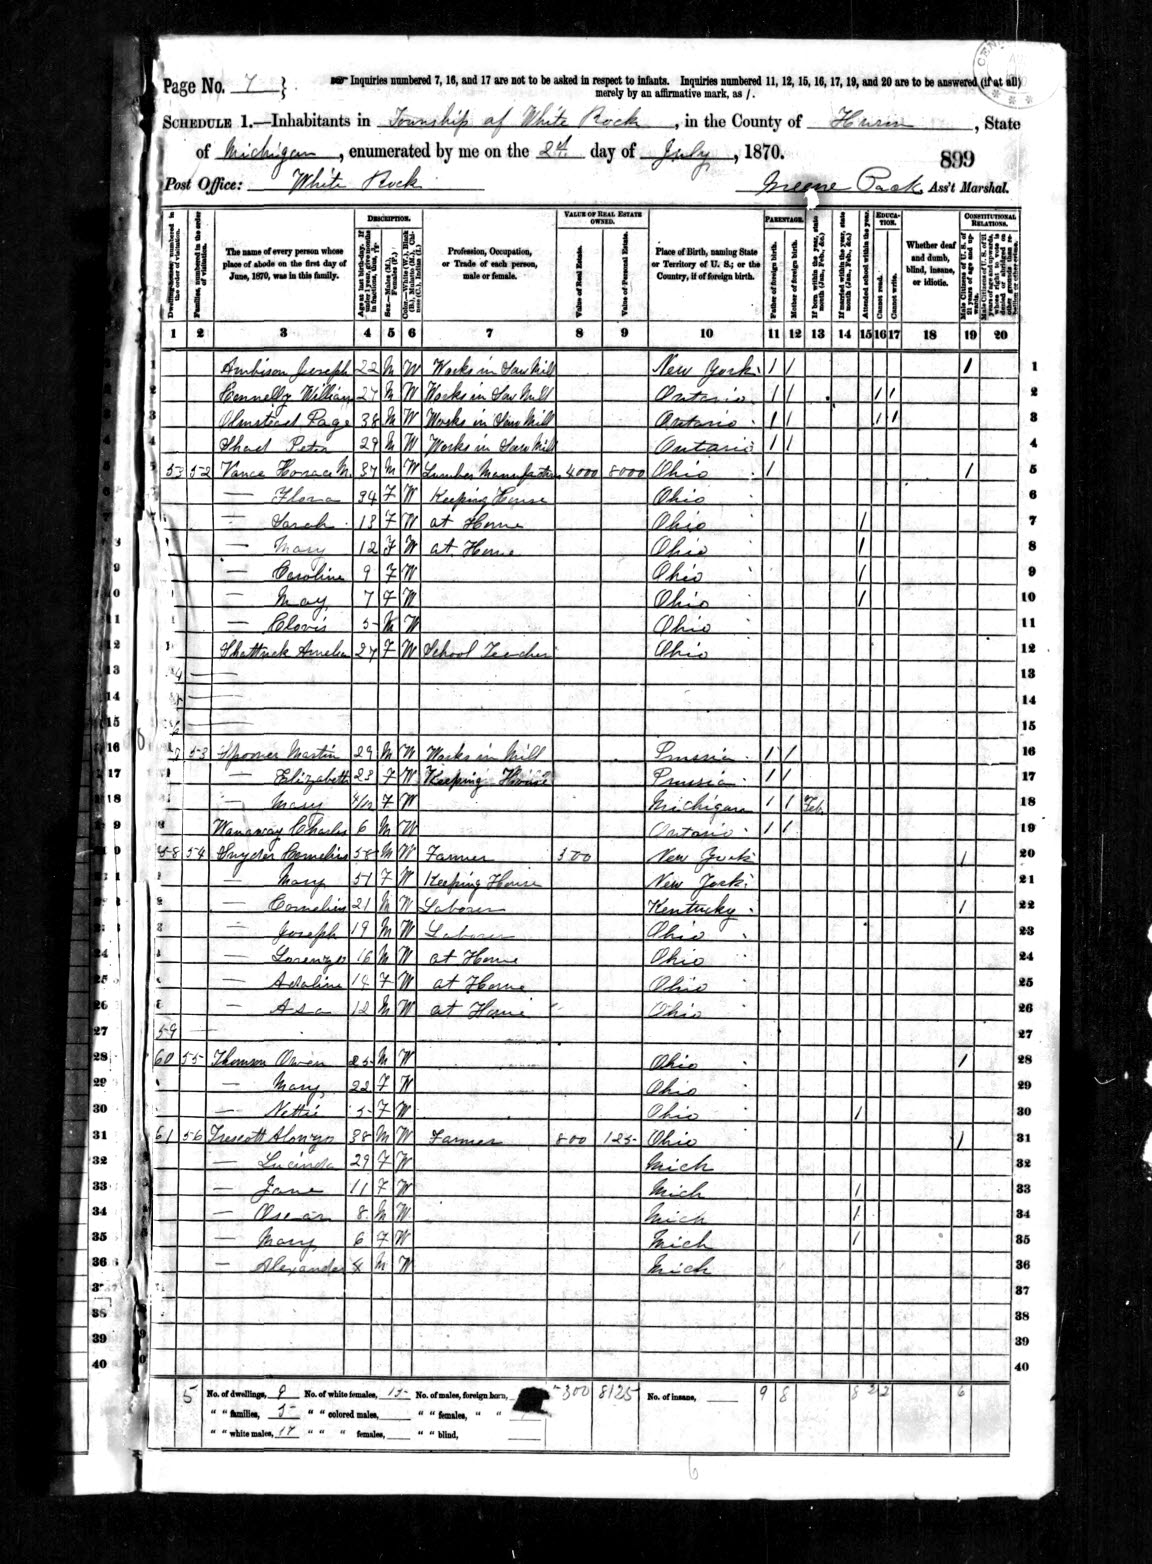 Page No. 7 } Inquiries numbered 7, 16, and 17 are not to be asked in respect to infants. Inquiries numbered 11, 12, 15, 16, 17, 19, and 20 are to be answered (if at all)
merely by an affirmative mark, as /.
SCHEDULE 1.—Inhabitants in Township of White Rock, in the County of Huron, State
of Michigan, enumerated by me on the day of July, 1870.
899
Post Office: White Rock Ass't Marshal.
Dwelling-houses, numbered in the order of visitation.
Families, numbered in the order of visitation.
The name of every person whose place of abode on the first day of June, 1870, was in this family.
DESCRIPTION.
Profession, Occupation, or Trade of each person, male or female.
VALUE OF REAL ESTATE OWNED.
Value of Real Estate.
Value of Personal Estate.
Place of Birth, naming State or Territory of U. S.; or the Country, if of foreign birth.
PARENTAGE.
Father of foreign birth.
Mother of foreign birth.
If born within the year, state month (Jan., Feb., &c.)
If married within the year, state month (Jan., Feb., &c.)
Attended school within the year.
EDUCATION.
Cannot read.
Cannot write.
Whether deaf and dumb, blind, insane, or idiotic.
CONSTITUTIONAL RELATIONS.
1 2 3 4 5 6 7 8 9 10 11 12 13 14 15 16 17 18 19 20
1 Joseph 22 M W Works in Saw Mill New York / / / 1
2 Connelly William 27 M W Works in Saw Mill Ontario / / / / 2
3 Olmstead Page 38 M W Works in Saw Mill Ontario / / / / 3
4 Peter 29 M W Works in Saw Mill Ontario / / 4
5 53 52 Vance Horace M. 37 M W Lumber Manufacturer 4000 8000 Ohio / / 5
— Flora 34 F W Keeping House Ohio 6
— Sarah 13 F W at Home Ohio / 7
— Mary 12 F W at Home Ohio / 8
— Caroline 9 F W Ohio / 9
— May 7 F W Ohio / 10
— Clovis 5 M W Ohio 11
Shattuck Amelia 27 F W School Teacher Ohio 12
13
14
15
53 Spooner Martin 29 M W Works in Mill Prussia / / 16
— Elizabeth 23 F W Keeping House Prussia / / 17
— Mary 4/12 F W Michigan / / Feb. 18
Charles 6 M W Ontario / / 19
58 54 Snyder Cornelius 58 M W Farmer 500 New York / 20
— Mary 51 F W Keeping House New York 21
— Cornelius 21 M W Laborer Kentucky / 22
— Joseph 19 M W Laborer Ohio 23
— Lorenzo 16 M W at Home Ohio 24
— Adaline 14 F W at Home Ohio 25
— Asa 12 M W at Home Ohio 26
59 — 27
60 55 Thomson Owen 25 M W Ohio / 28
— Mary 22 F W Ohio 29
— Nettie 5 F W Ohio / 30
61 56 Trescott Alonzo 38 M W Farmer 800 125 Ohio / 31
— Lucinda 29 F W Mich 32
— Jane 11 F W Mich / 33
— Oscar 8 M W Mich / 34
— Mary 6 F W Mich / 35
— Alexander M W Mich 36
37
38
39
40
5 No. of dwellings, 9 No. of white females, 15 No. of males, foreign born, 8125 No. of insane, 9 8 8 2 2 6
" " families, 5 " " colored males, " " females, " "
" " white males, 17 " " " females, " " blind,
6